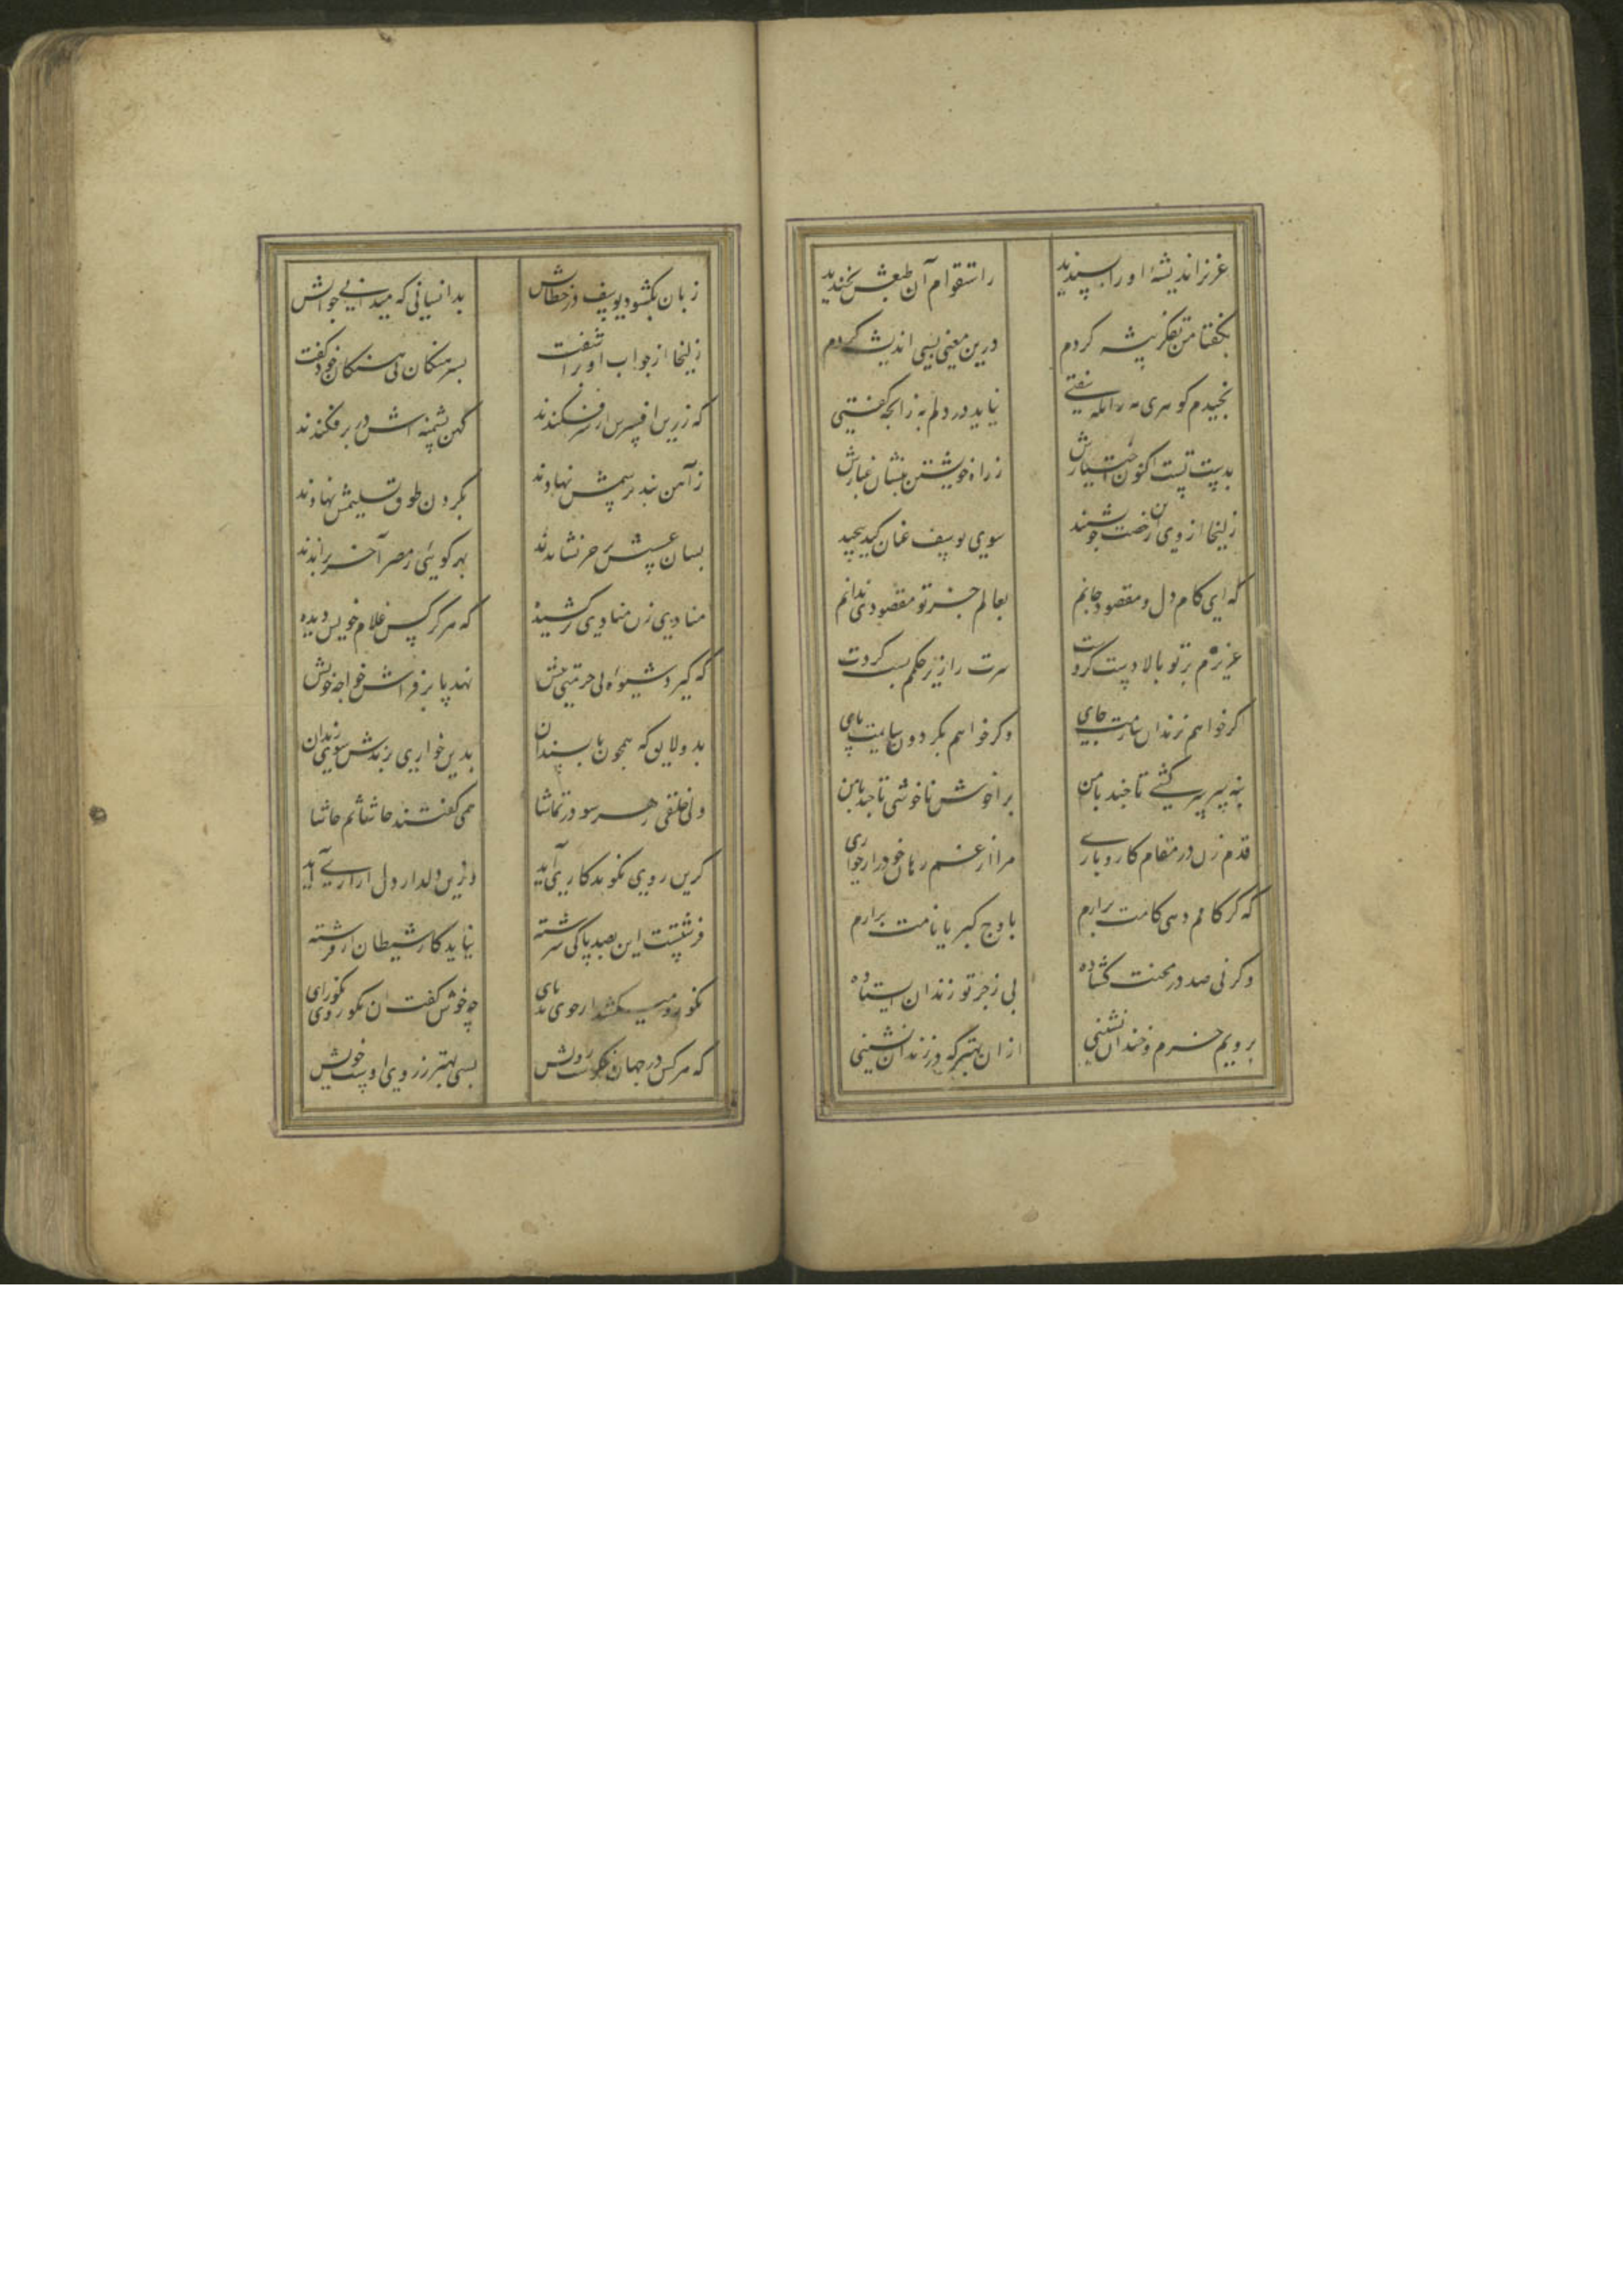 عزیز اندیشهٔ او را پسندید
ز استقوام آن طبعش بخندید
بگفتا من تفکر پیشه کردم
درین معنی بسی اندیشه کردم
نچیدم گوهری به زانکه سفتی
نیاید در دلم به زانچه گفتی
بدست تست اکنون اختیارش
ز راه خویشتن بنشان غبارش
زلیخا از وی این رخصت چو بشنید
سوی یوسف عنان کید پیچید
که ای کام دل و مقصود جانم
بعالم جز تو مقصودی ندانم
عزیزم بر تو بالا دست کردست
سرت را زیر حکمم پست کردست
اگر خواهم بزندان سازمت جای
وگر خواهم بگردون سایمت پای
بنه سر سرکشی تا چند با من
برا خوش ناخوشی تا چند با من
قدم زن در مقام کار و باری
مرا از غم رهان خود را ز خواری
که گر کامم دهی کامت برارم
باوج کبریا نامت برارم
وگر نی صد در محنت گشاده
پی زجر تو زندان ایستاده
برویم خرم و خندان نشینی
ازان بهتر که در زندان نشینی
زبان بگشود یوسف در خطابش
بدانسانی که میدانی جوابش
زلیخا از جواب او برآشفت
بسرهنگان بی سنگان خود گفت
که زرین افسرش از سر فکندند
کهن پشمینه اش در بر فکندند
ز آهن بند بر سیمش نهادند
بگردن طوق تسلیمش نهادند
بسان عیسیش بر خر نشاندند
بهر کویی ز مصر آخر براندند
منادی زن منادی برکشیده
که هر سرکش غلام خویش دیده
که گیرد شیوه بی حرمتی پیش
نهد پا بر فراش خواجهٔ خویش
بود لایق که همچون ناپسندان
بدین خواری برندش سوی زندان
ولی خلقی ز هر سو در تماشا
همی گفتند حاشا ثم حاشا
کزین روی نکو بدکاری آید
وزین دلدار دل آزاری آید
فرشتست این بصد پاکی سرشته
نیاید کار شیطان از فرشته
نکو رو میکشد از خوی بد پای
چه خوش گفت آن نکو روی نکو رای
که هر کس در جهان نیکوست رویش
بسی بهتر ز روی اوست خویش